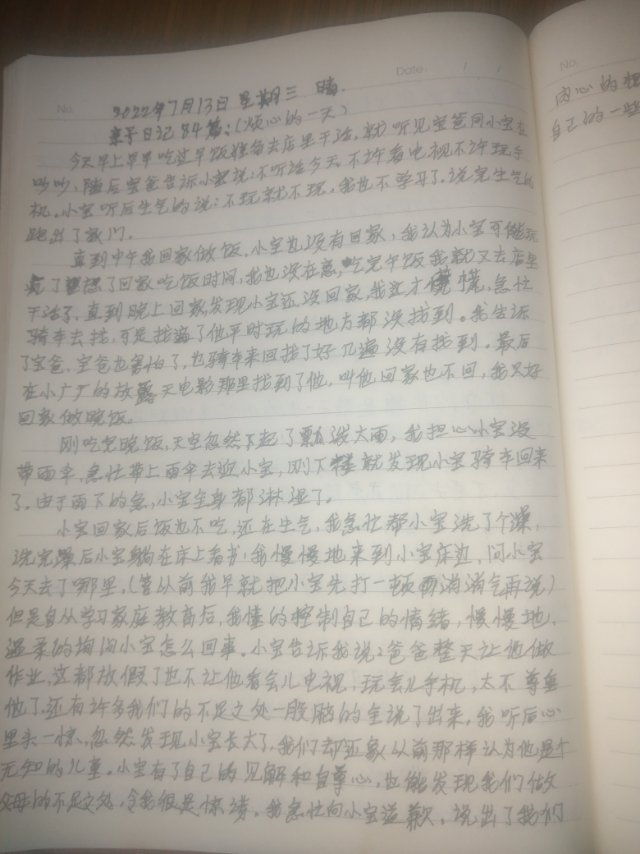 Date: / /
No.
2022年7月13日 星期三 晴.
亲子日记84篇:(烦心的一天)
今天早上早早吃过早饭准备去店里干活,就听见宝爸同小宝在
吵吵,随后宝爸告诉小宝说:不听话今天不许看电视不许玩手
机。小宝听后生气的说:不玩就不玩,我也不学习了。说完生气的
跑出了家门。
直到中午我回家做饭,小宝也没有回家,我认为小宝可能玩
疯了忘了回家吃饭时间,我也没在意,吃完午饭我就又去店里
干活了,直到晚上回家发现小宝还没回家,我这才慌,急忙
骑车去找,可是找遍了他平时玩的地方都没找到。我告诉
了宝爸,宝爸也害怕了,也骑车来回找了好几遍没有找到。最后
在小广厂的放露天电影那里找到了他,叫他回家也不回,我只好
回家做晚饭。
刚吃完晚饭,天空忽然下起了瓢泼大雨,我担心小宝没
带雨伞,急忙带上雨伞去迎小宝,刚下楼就发现小宝骑车回来
了。由于雨下的急,小宝全身都淋湿了。
小宝回家后饭也不吃,还在生气,我急忙帮小宝洗了个澡,
洗完澡后小宝躺在床上看书,我慢慢地来到小宝床边,问小宝
今天去了哪里,(管从前我早就把小宝先打一顿消消气再说)
但是自从学习家庭教育后,我懂的控制自己的情绪,慢慢地,
温柔的询问小宝怎么回事。小宝告诉我说:爸爸整天让他做
作业,这都放假了也不让他看会儿电视,玩会儿手机,太不尊重
他了,还有许多我们的不足之处一股脑的全说了出来,我听后心
里头一惊,忽然发现小宝长大了,我们却还象以前那样认为他是个
无知的儿童。小宝有了自己的见解和自尊心,也能发现我们做
父母的不足之处,令我很是惊讶。我急忙向小宝道歉,说出了我们
No.
内心的想
自己的一些